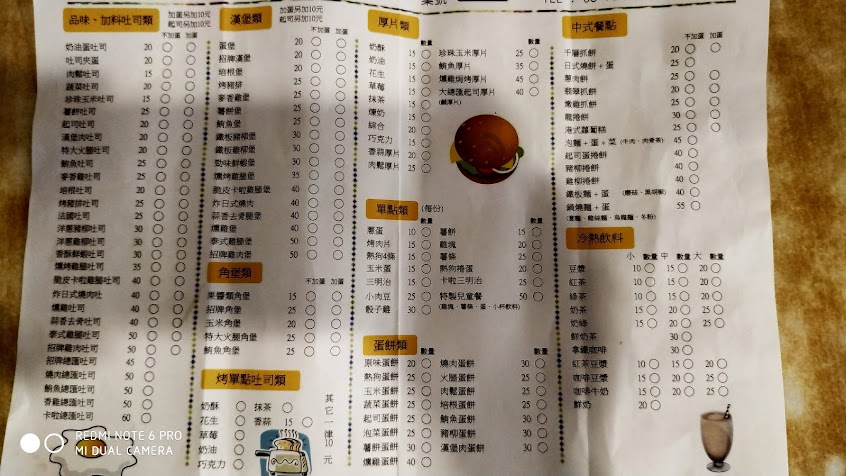 品味、加料吐司類
加蛋另加10元
起司另加10元
不加蛋 加蛋
奶油蛋吐司 20
吐司夾蛋 20
肉鬆吐司 15
蔬菜吐司 20
珍珠玉米吐司 15
薯餅吐司 25
起司吐司 20
漢堡肉吐司 25
特大火腿吐司 25
鮪魚吐司 25
麥香雞吐司 25
培根吐司 20
烤豬排吐司 25
法國吐司 25
洋蔥豬柳吐司 30
洋蔥雞柳吐司 30
香酥鮮蝦吐司 30
燻烤雞腿吐司 35
脆皮卡啦雞腿吐司 40
炸日式燒肉吐 40
燻雞吐司 40
蒜香去骨吐司 40
泰式雞腿吐司 50
招牌雞肉吐司 50
招牌總匯吐司 45
燒肉總匯吐司 50
鮪魚總匯吐司 50
香雞總匯吐司 50
卡啦總匯吐司 60
漢堡類
加蛋另加10元
起司另加10元
不加蛋 加蛋
蛋堡 20
招牌漢堡 20
培根堡 20
烤豬排 25
麥香雞堡 25
薯餅堡 25
鮪魚堡 25
鐵板豬柳堡 30
鐵板雞柳堡 30
勁味鮮蝦堡 30
燻烤雞腿堡 35
脆皮卡啦雞腿堡 40
炸日式燒肉 40
蒜香去骨腿堡 40
燻雞堡 40
泰式雞腿堡 50
雞肉地瓜堡 50
角堡類
不加蛋 加蛋
果醬類角堡 15
招牌角堡 25
玉米角堡 25
特大火腿角堡 25
鮪魚角堡 25
烤單點吐司類
奶酥 抹茶
花生 香蒜 15
草莓
奶油
巧克力
其它一律10元
厚片類
數量
奶酥 15
奶油 15
花生 15
草莓 15
抹茶 15
煉奶 15
綜合 20
巧克力 15
香蒜厚片 20
肉鬆厚片 25
數量
珍珠玉米厚片 25
鮪魚厚片 35
燻雞焗烤厚片 45
大總匯起司厚片 40
(鹹厚片)
單點類
(每份)
數量
蔥蛋 10
烤肉片 15
熱狗4條 15
玉米蛋 25
三明治 15
小肉豆 25
骰子雞 30
數量
薯餅 15
雞塊 20
薯條 25
熱狗捲蛋 20
卡啦三明治 25
特製兒童餐 50
(雞塊、薯條、蛋、小杯飲料)
蛋餅類
數量
原味蛋餅 20
熱狗蛋餅 25
玉米蛋餅 25
蔬菜蛋餅 25
起司蛋餅 25
泡菜蛋餅 25
薯餅蛋餅 30
燻雞蛋餅 40
數量
燒肉蛋餅 30
火腿蛋餅 25
肉鬆蛋餅 25
培根蛋餅 25
鮪魚蛋餅 30
豬柳蛋餅 30
漢堡肉蛋餅 30
中式餐點
不加蛋 加蛋
千層抓餅 20
日式燒餅+蛋 25
蔥肉餅 25
翡翠抓餅 25
嫩雞抓餅 30
龍捲餅 30
港式蘿蔔糕 25
泡麵+蛋+菜 (牛肉、肉骨茶) 45
起司蛋捲餅 40
豬柳捲餅 40
雞柳捲餅 40
鐵板麵+蛋 (蘑菇、黑胡椒) 40
鍋燒麵+蛋 55
(意麵、雞絲麵、烏龍麵、冬粉)
冷熱飲料
小 數量 中 數量 大 數量
豆漿 10 15 20
紅茶 10 15 20
綠茶 10 15 20
奶茶 15 20 25
奶綠 15 20 25
鮮奶茶 30
拿鐵咖啡 30
紅茶豆漿 10 15 20
咖啡豆漿 15 20 25
咖啡牛奶 15 20 25
鮮奶 20
REDMI NOTE 6 PRO
MI DUAL CAMERA